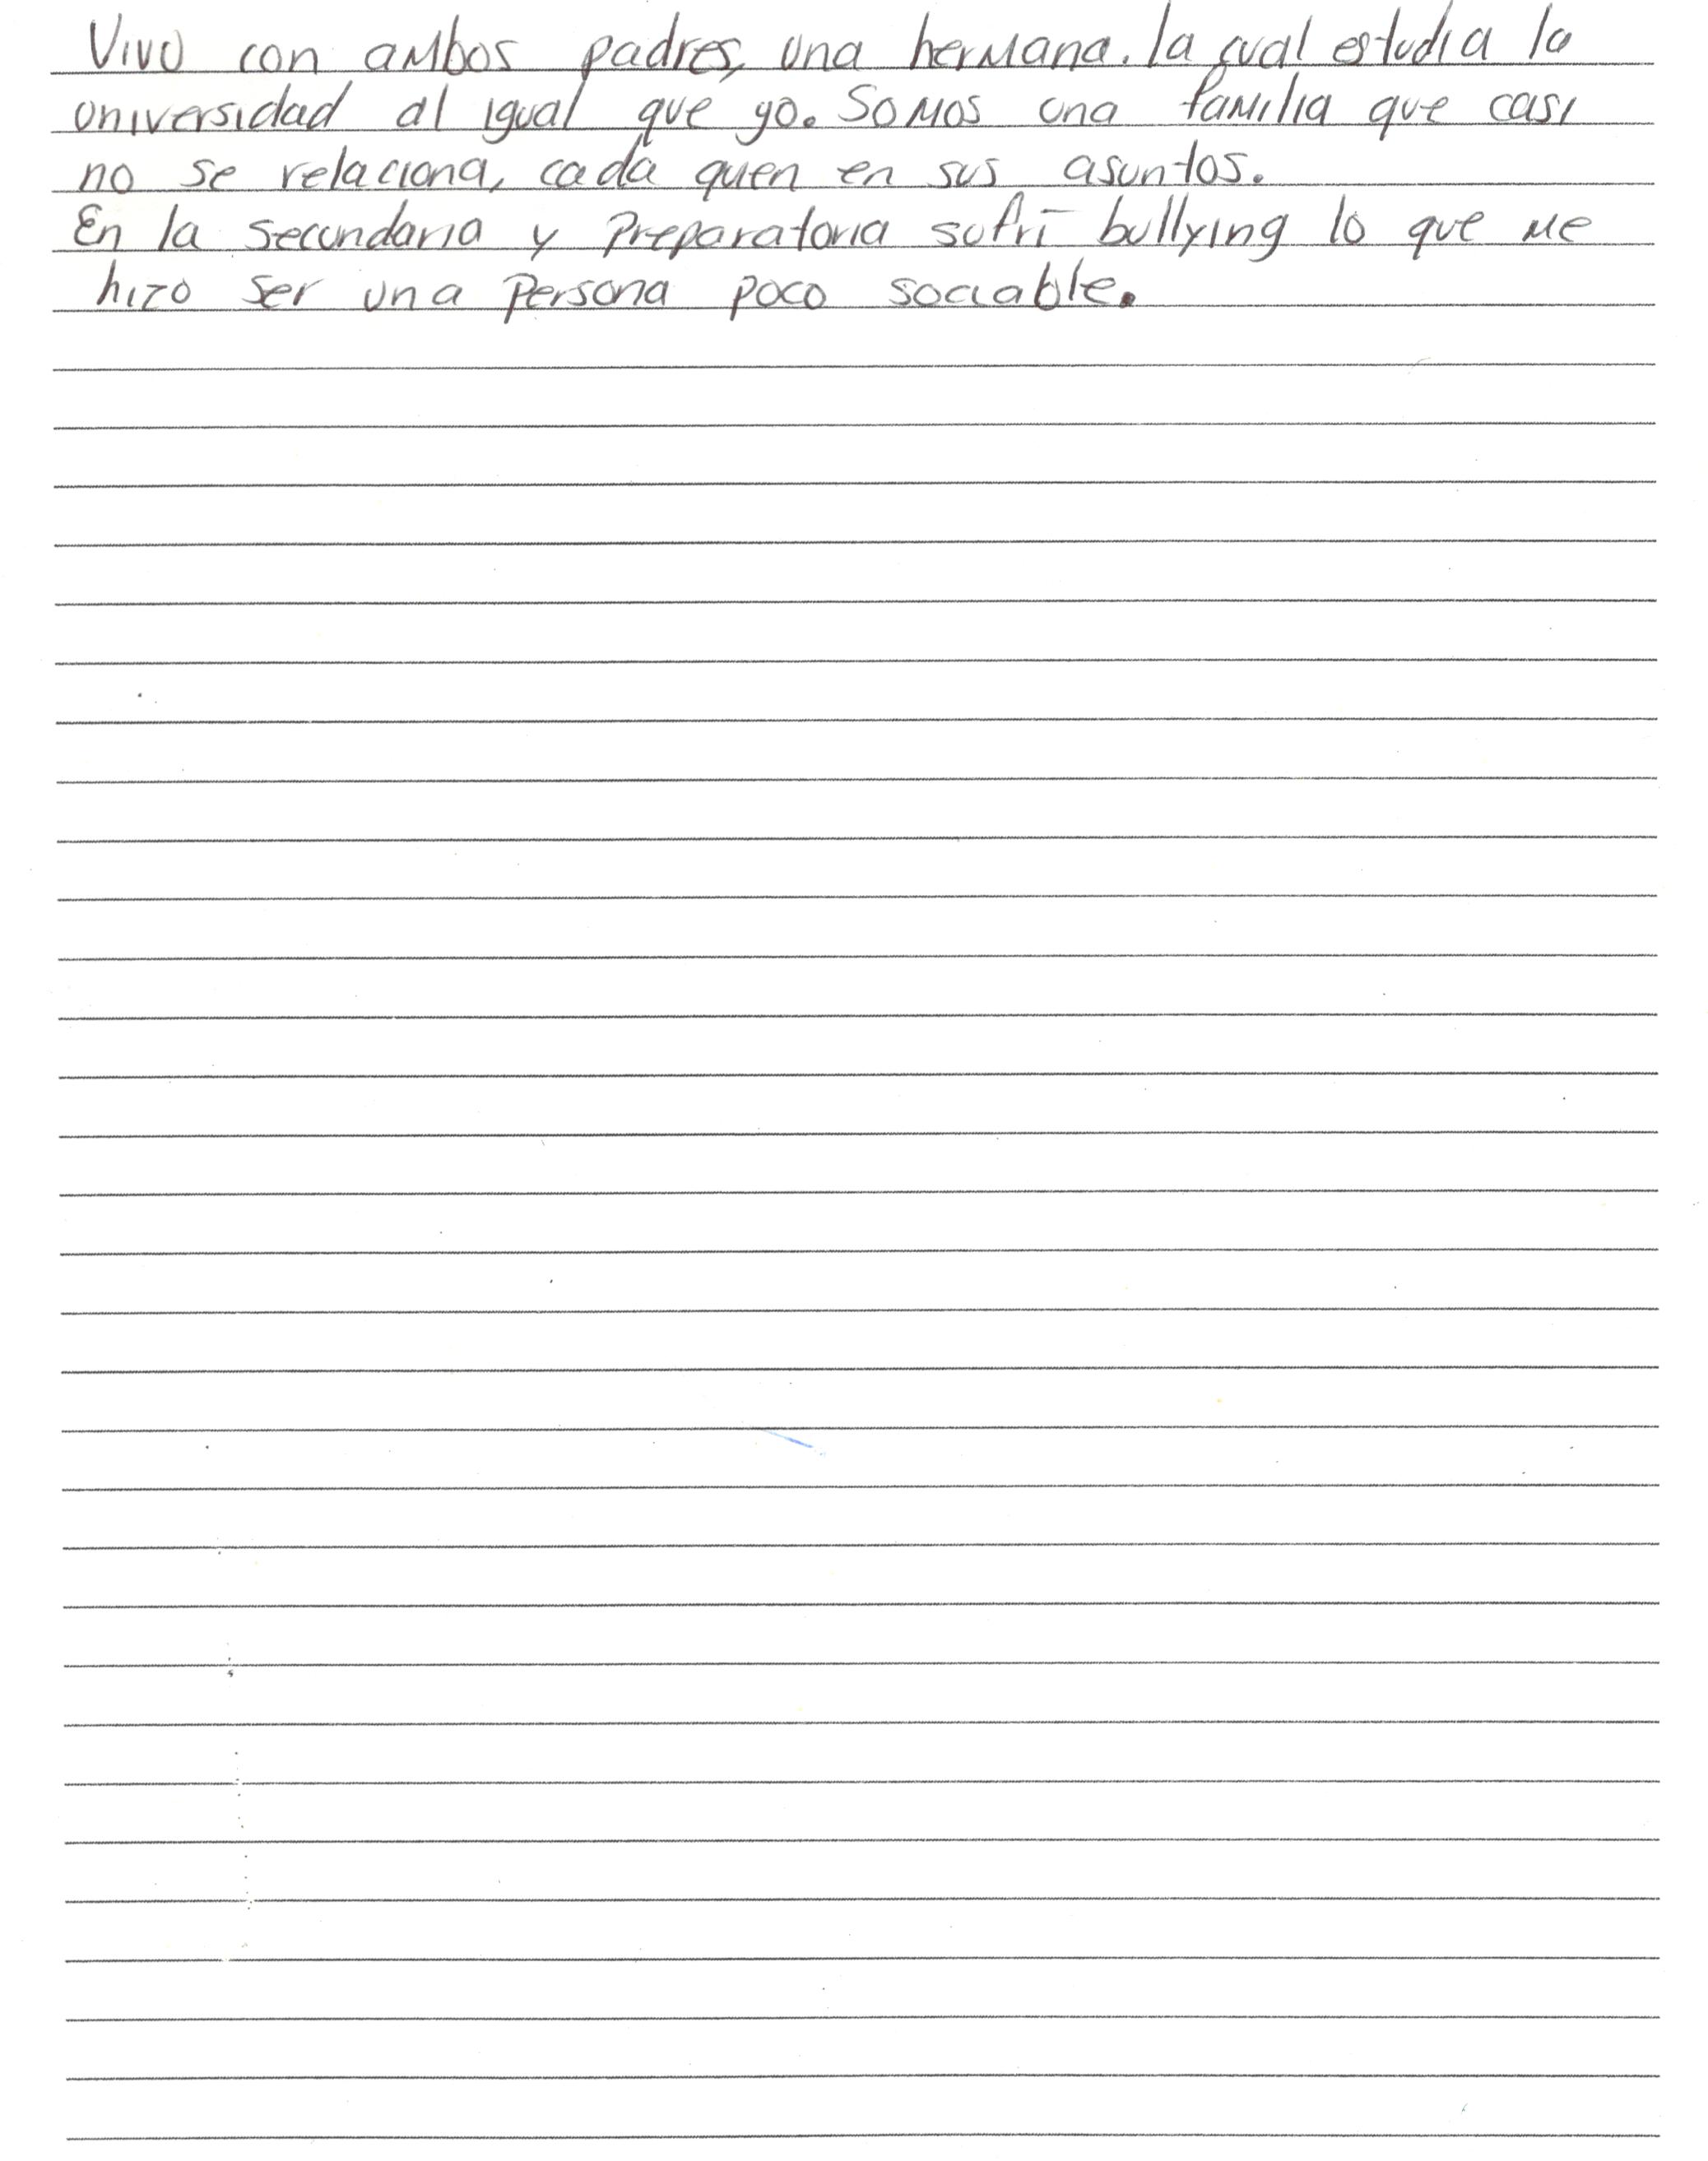 Vivo con ambos padres, una hermana. la cual estudia la
universidad al igual que yo. Somos una familia que casi
no se relaciona, cada quen en sus asuntos.
En la secundaria y preparatoria sufrí bullying lo que me
hizo ser una persona poco sociable.